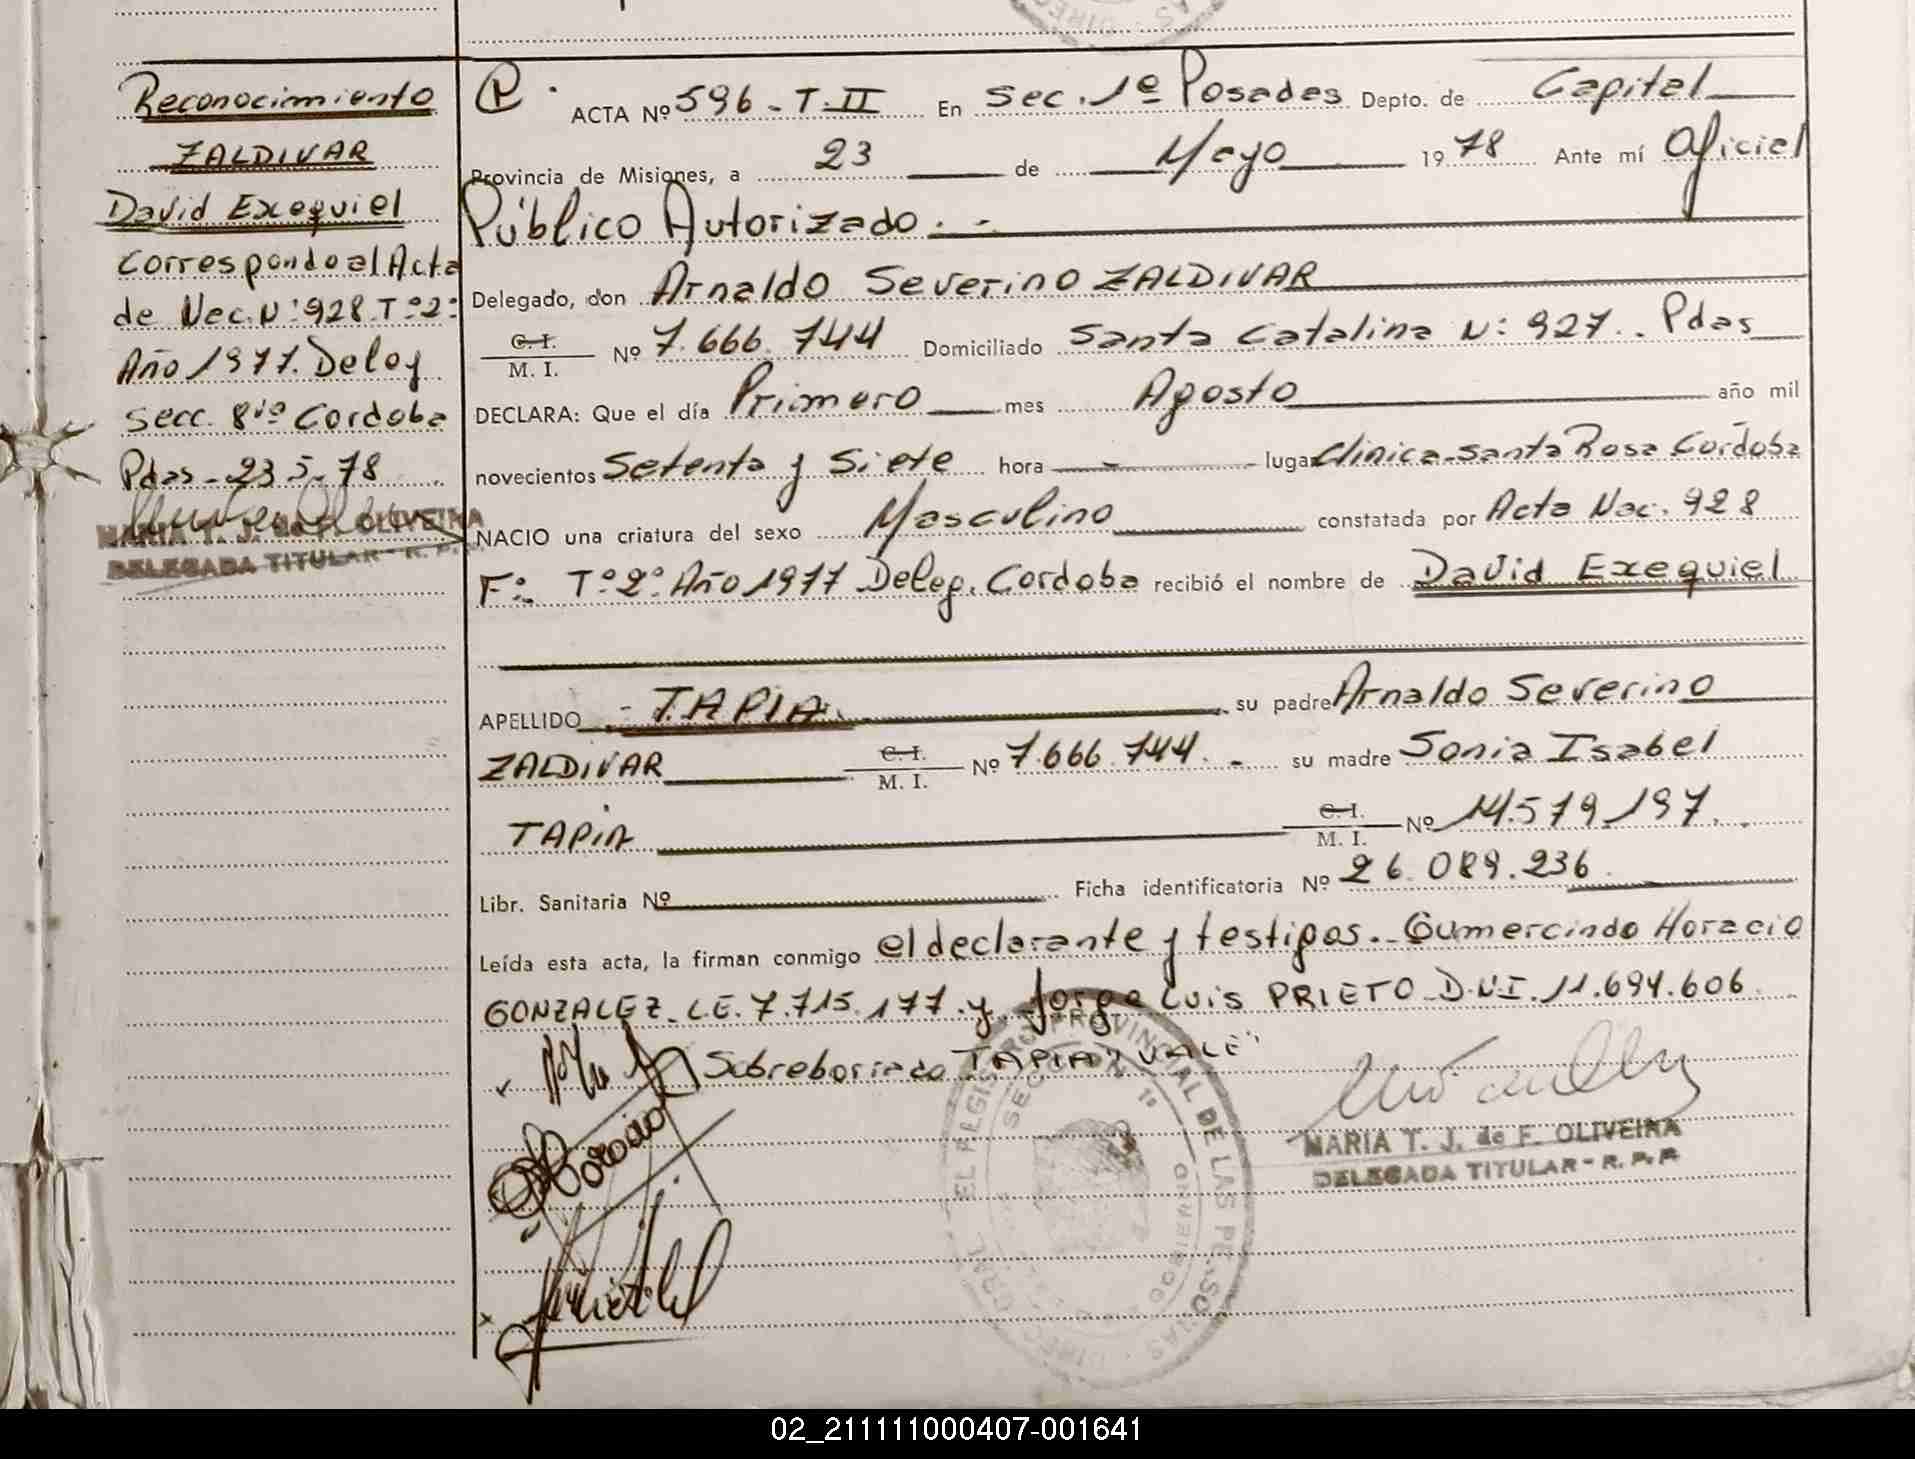 Reconocimiento
ZALDIVAR
David Exequiel
Correspondo al Acta
de Nac. N: 928 Tº 2º
Año 1977. Deleg
Secc. 8va Cordoba
Pdas - 23 5-78
MARIA T. J. de F. OLIVEIRA
DELEGADA TITULAR - R. P. P.
P. ACTA Nº 596 - T. II En Sec. 1ª Posadas Depto. de Capital
Provincia de Misiones, a 23 de Mayo 1978 Ante mí Oficial
Público Autorizado. -
Delegado, don Arnaldo Severino ZALDIVAR
C. I. / M. I. Nº 7.666.744 Domiciliado Santa Catalina N: 927. Pdas
DECLARA: Que el día Primero mes Agosto año mil
novecientos Setenta y Siete hora - lugar Clinica-Santa Rosa Cordoba
NACIO una criatura del sexo Masculino constatada por Acta Nac. 928
Fº: Tº 2º Año 1977 Deleg. Cordoba recibió el nombre de David Exequiel
APELLIDO - TAPIA. su padre Arnaldo Severino
ZALDIVAR C. I. / M. I. Nº 7.666.744. - su madre Sonia Isabel
TAPIA C. I. / M. I. Nº 14.579.197.
Libr. Sanitaria Nº Ficha identificatoria Nº 26.089.236
Leída esta acta, la firman conmigo el declarante y testigos. Gumercindo Horacio
GONZALEZ - L.E. 7.715.177. y Jorge Luis PRIETO D.N.I. 11.694.606
Sobreborrado TAPIA "VALE"
MARIA T. J. de F. OLIVEIRA
DELEGADA TITULAR - R. P. P.
02_211111000407-001641